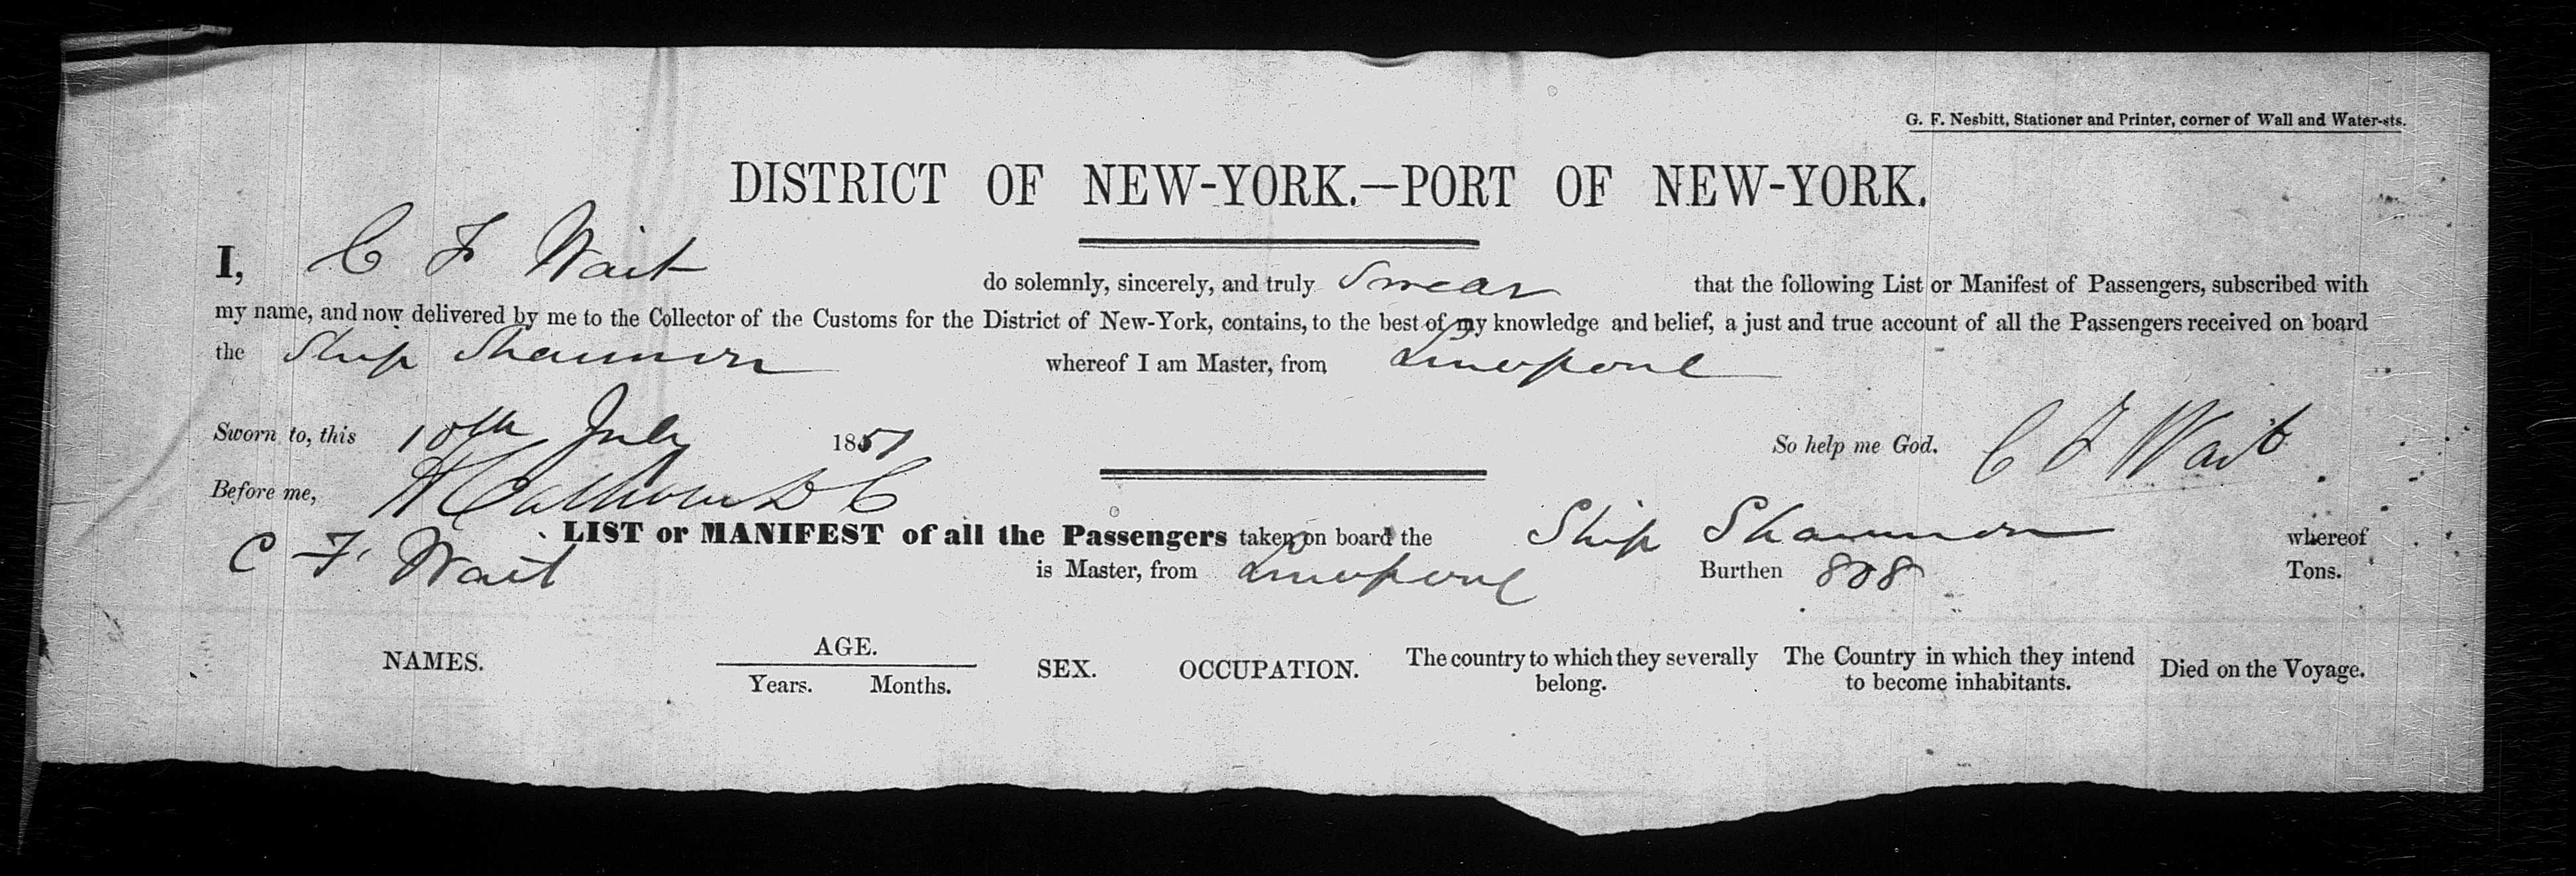 G. F. Nesbitt, Stationer and Printer, corner of Wall and Water-sts.
DISTRICT OF NEW-YORK.—PORT OF NEW-YORK.
I, C F Wait do solemnly, sincerely, and truly Swear that the following List or Manifest of Passengers, subscribed with
my name, and now delivered by me to the Collector of the Customs for the District of New-York, contains, to the best of my knowledge and belief, a just and true account of all the Passengers received on board
the Ship Shannon whereof I am Master, from Liverpool
Sworn to, this 10th July 1851 So help me God. C F Wait
Before me,
LIST or MANIFEST of all the Passengers taken on board the Ship Shannon whereof
C F Wait is Master, from Liverpool Burthen 808 Tons.
NAMES. AGE. Years. Months. SEX. OCCUPATION. The country to which they severally belong. The Country in which they intend to become inhabitants. Died on the Voyage.